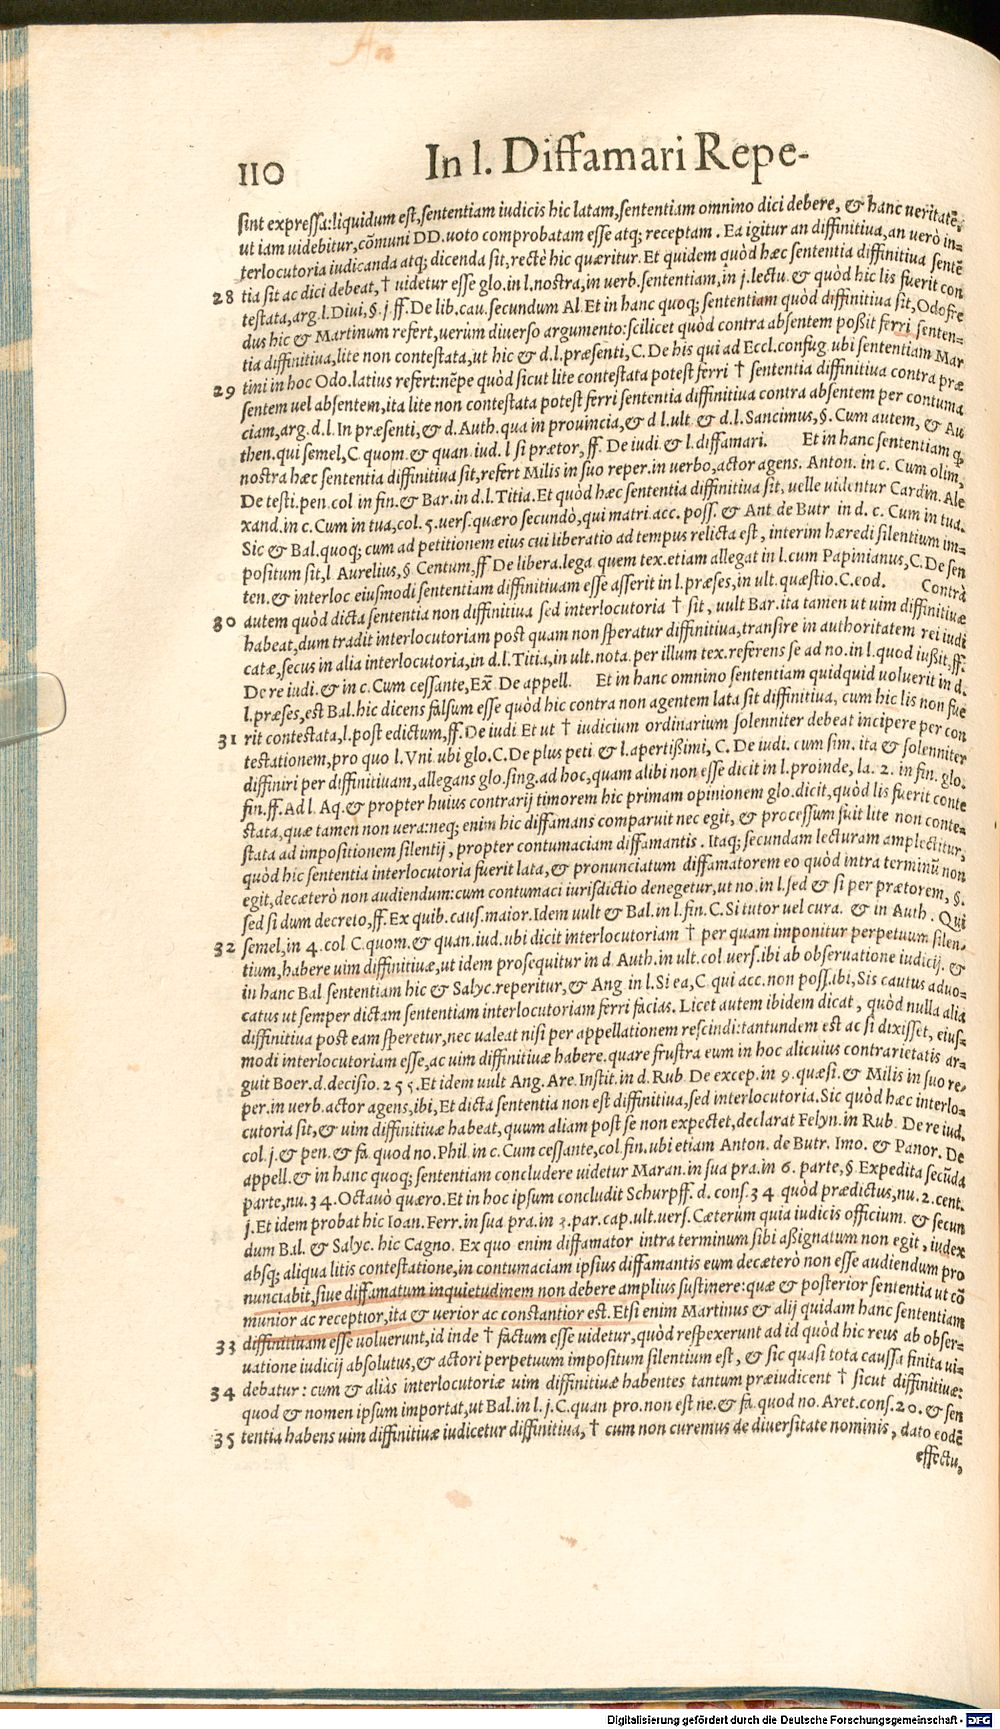 110
In l. Diffamari Repe-
sint expressa: liquidum est, sententiam iudicis hic latam, sententiam omnino dici debere, & hanc ueritatē,
ut iam uidebitur, cõmuni DD. uoto comprobatam esse atq; receptam. Ea igitur an diffinitiua, an uerò in-
terlocutoria iudicanda atq; dicenda sit, rectè hic quæritur. Et quidem quòd hæc sententia diffinitiua sentē
28 tia sit ac dici debeat, † uidetur esse glo. in l. nostra, in uerb. sententiam, in j. lectu. & quòd hic lis fuerit con
testata, arg. l. Diui, §. j. ff. De lib. cau. secundum Al. Et in hanc quoq; sententiam quòd diffinitiua sit, Odofre
dus hic & Martinum refert, uerùm diuerso argumento: scilicet quòd contra absentem poßit ferri senten-
tia diffinitiua, lite non contestata, ut hic & d. l. præsenti, C. De his qui ad Eccl. confug. ubi sententiam Mar
29 tini in hoc Odo. latius refert: nēpe quòd sicut lite contestata potest ferri † sententia diffinitiua contra præ
sentem uel absentem, ita lite non contestata potest ferri sententia diffinitiua contra absentem per contuma
ciam, arg. d. l. In præsenti, & d. Auth. qua in prouincia, & d l. ult. & d. l. Sancimus, §. Cum autem, & Au
then. qui semel, C. quom. & quan. iud. l si prætor, ff. De iudi. & l. diffamari. Et in hanc sententiam q̣
nostra hæc sententia diffinitiua sit, refert Milis in suo reper. in uerbo, actor agens. Anton. in c. Cum olim,
De testi. pen. col in fin. & Bar. in d. l. Titia. Et quòd hæc sententia diffinitiua sit, uelle uidentur Cardin. Ale
xand. in c. Cum in tua, col. 5. uers. quæro secundò, qui matri. acc. poss. & Ant. de Butr in d. c. Cum in tua.
Sic & Bal. quoq; cum ad petitionem eius cui liberatio ad tempus relicta est, interim hæredi silentium im-
positum sit, l. Aurelius, §. Centum, ff De libera. lega. quem tex. etiam allegat in l. cum Papinianus, C. De sen
ten. & interloc. eiusmodi sententiam diffinitiuam esse asserit in l. præses, in ult. quæstio. C. eod. Contrà
30 autem quòd dicta sententia non diffinitiua sed interlocutoria † sit, uult Bar. ita tamen ut uim diffinitiuæ
habeat, dum tradit interlocutoriam post quam non speratur diffinitiua, transire in authoritatem rei iudi
catæ, secus in alia interlocutoria, in d. l. Titia, in ult. nota. per illum tex. referens se ad no. in l. quod iußit, ff.
De re iudi. & in c. Cum cessante, Ex̃. De appell. Et in hanc omnino sententiam quidquid uoluerit in d.
l. præses, est Bal. hic dicens falsum esse quòd hic contra non agentem lata sit diffinitiua, cum hic lis non fue
31 rit contestata, l. post edictum, ff. De iudi Et ut † iudicium ordinarium solenniter debeat incipere per con
testationem, pro quo l. Vni. ubi glo. C. De plus peti & l. apertißimi, C. De iudi. cum sim. ita & solenniter
diffiniri per diffinitiuam, allegans glo. sing. ad hoc, quam alibi non esse dicit in l. proinde, la. 2. in fin. glo.
fin. ff. Ad l. Aq. & propter huius contrarij timorem hic primam opinionem glo. dicit, quòd lis fuerit conte
stata, quæ tamen non uera: neq; enim hic diffamans comparuit nec egit, & processum fuit lite non conte-
stata ad impositionem silentij, propter contumaciam diffamantis. Itaq; secundam lecturam amplectitur,
quòd hic sententia interlocutoria fuerit lata, & pronunciatum diffamatorem eo quòd intra terminũ non
egit, decæterò non audiendum: cum contumaci iurisdictio denegetur, ut no. in l. sed & si per prætorem, §.
sed si dum decreto, ff. Ex quib. caus. maior. Idem uult & Bal. in l. fin. C. Si tutor uel cura. & in Auth. Qui
32 semel, in 4. col. C. quom. & quan. iud. ubi dicit interlocutoriam † per quam imponitur perpetuum silen-
tium, habere uim diffinitiuæ, ut idem prosequitur in d. Auth. in ult. col. uers. ibi ab obseruatione iudicij. &
in hanc Bal sententiam hic & Salyc. reperitur, & Ang in l. Si ea, C qui acc. non poss. ibi, Sis cautus aduo-
catus ut semper dictam sententiam interlocutoriam ferri facias. Licet autem ibidem dicat, quòd nulla alia
diffinitiua post eam speretur, nec ualeat nisi per appellationem rescindi: tantundem est ac si dixisset, eius-
modi interlocutoriam esse, ac uim diffinitiuæ habere. quare frustra eum in hoc alicuius contrarietatis ar-
guit Boer. d. decisio. 255. Et idem uult Ang. Are. Instit. in d. Rub De excep. in 9. quæsi. & Milis in suo re-
per. in uerb. actor agens, ibi, Et dicta sententia non est diffinitiua, sed interlocutoria. Sic quòd hæc interlo-
cutoria sit, & uim diffinitiuæ habeat, quum aliam post se non expectet, declarat Felyn. in Rub. De re iud.
col. j. & pen. & fa. quod no. Phil. in c. Cum cessante, col. fin. ubi etiam Anton. de Butr. Imo. & Panor. De
appell. & in hanc quoq; sententiam concludere uidetur Maran. in sua pra. in 6. parte, §. Expedita secũda
parte, nu. 34. Octauò quæro. Et in hoc ipsum concludit Schurpff. d. cons. 34 quòd prædictus, nu. 2. cent.
j. Et idem probat hic Ioan. Ferr. in sua pra. in 3. par. cap. ult. uers. Cæterùm quia iudicis officium. & secun
dum Bal. & Salyc. hic Cagno. Ex quo enim diffamator intra terminum sibi aßignatum non egit, iudex
absq; aliqua litis contestatione, in contumaciam ipsius diffamantis eum decæterò non esse audiendum pro
nunciabit, siue diffamatum inquietudinem non debere amplius sustinere: quæ & posterior sententia ut cõ
munior ac receptior, ita & uerior ac constantior est. Etsi enim Martinus & alij quidam hanc sententiam
33 diffinitiuam esse uoluerunt, id inde † factum esse uidetur, quòd respexerunt ad id quòd hic reus ab obser-
uatione iudicij absolutus, & actori perpetuum impositum silentium est, & sic quasi tota caussa finita ui-
34 debatur: cum & aliàs interlocutoriæ uim diffinitiuæ habentes tantum præiudicent † sicut diffinitiuæ:
quod & nomen ipsum importat, ut Bal. in l. j. C. quan pro. non est ne. & fa. quod no. Aret. cons. 20. & sen
35 tentia habens uim diffinitiuæ iudicetur diffinitiua, † cum non curemus de diuersitate nominis, dato eodē
effectu,
Digitalisierung gefördert durch die Deutsche Forschungsgemeinschaft - DFG